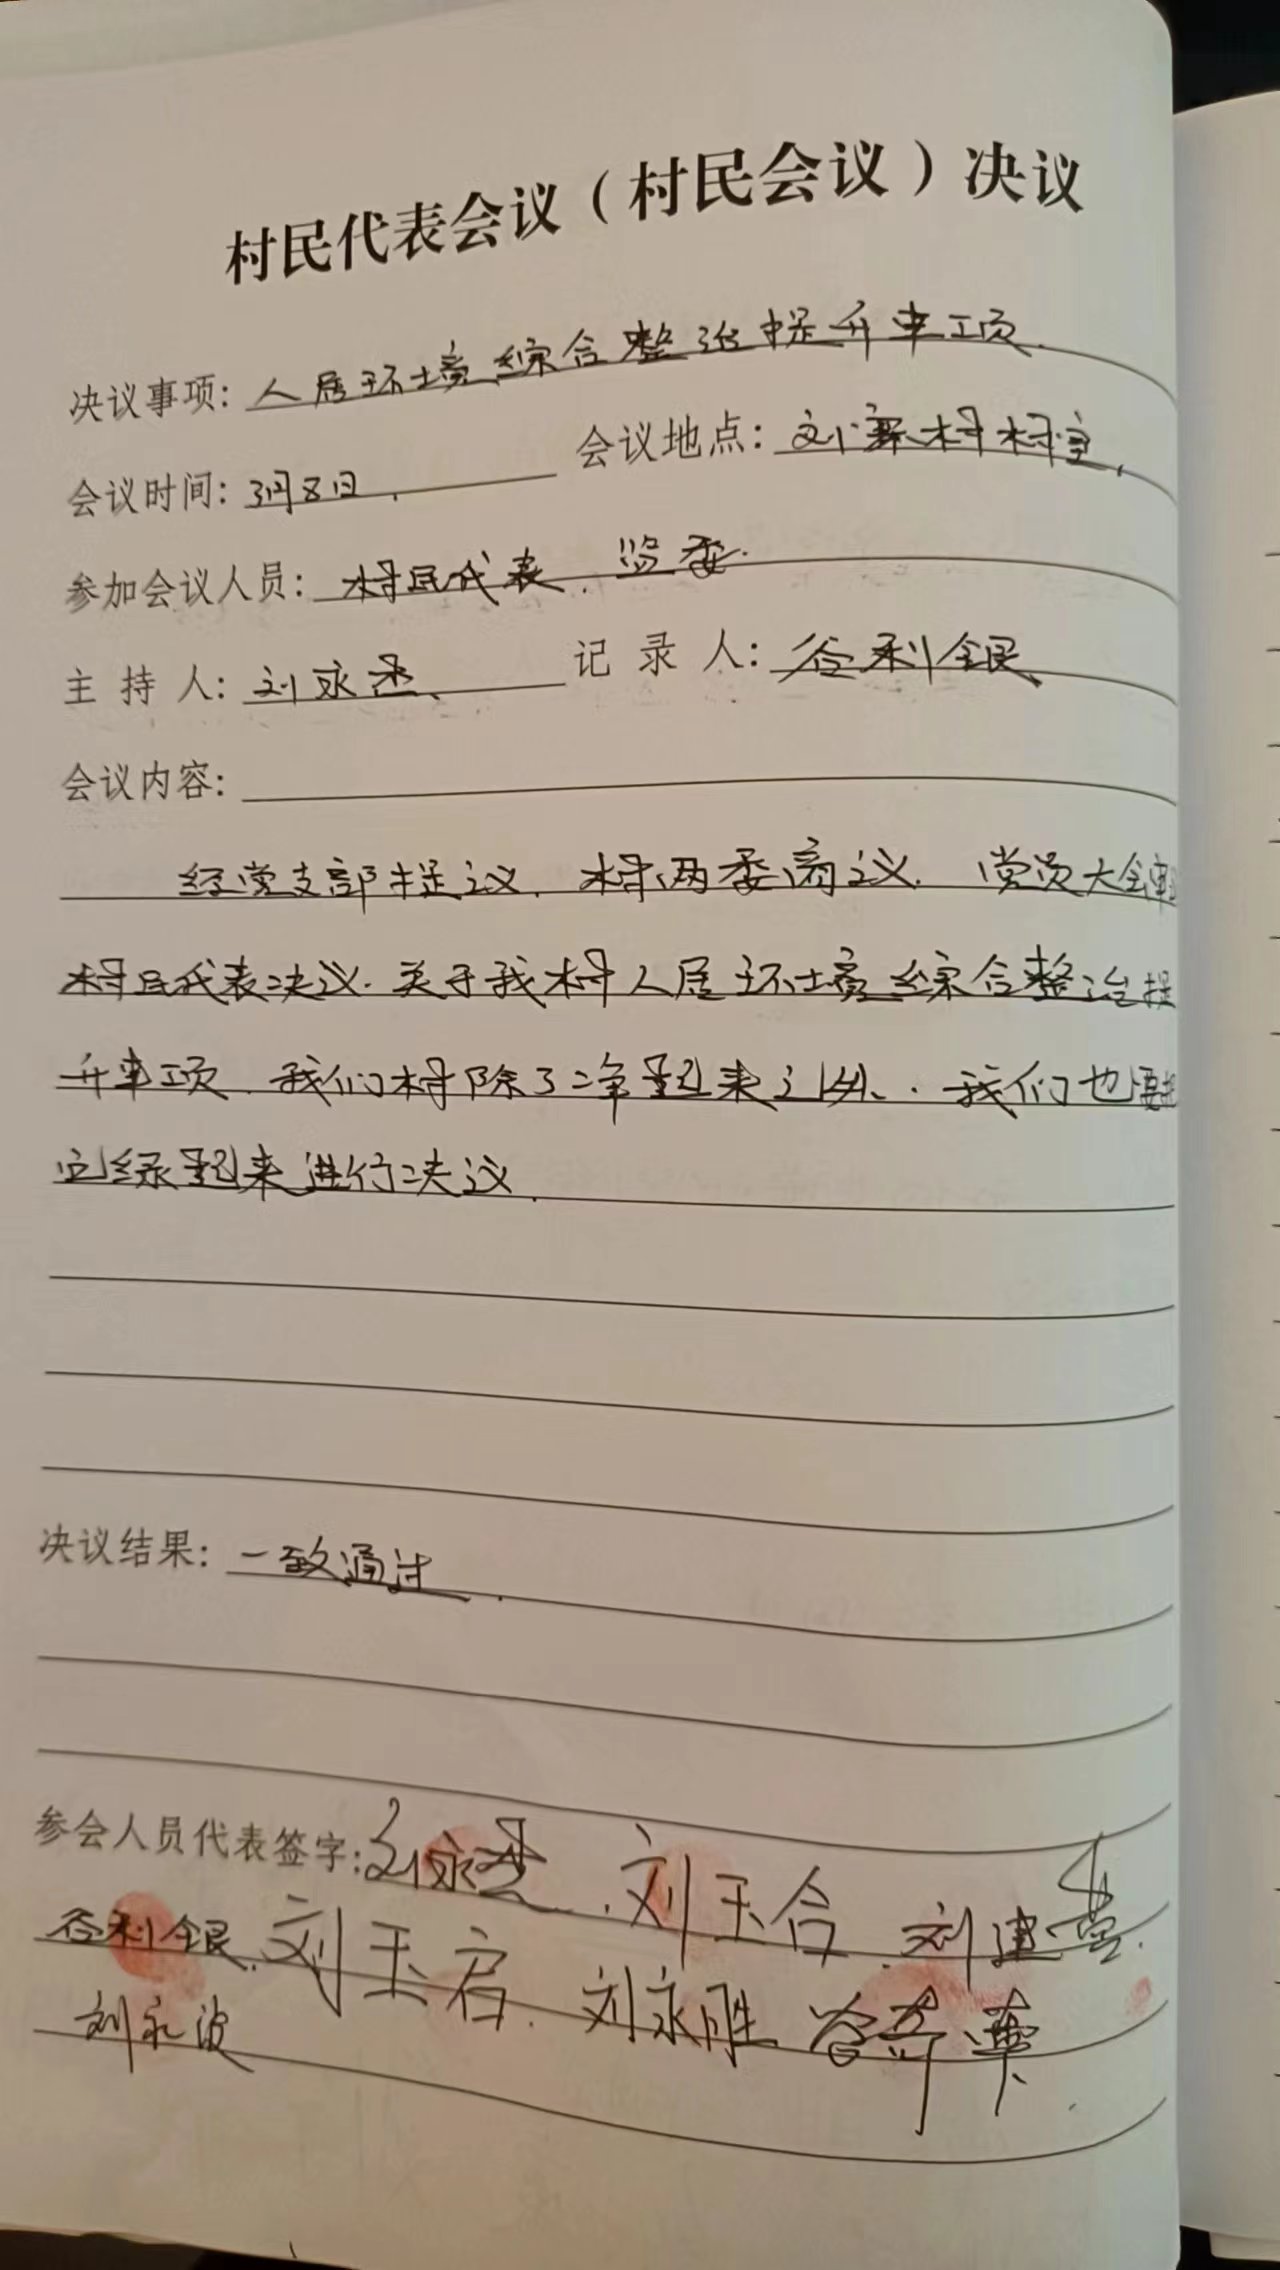 村民代表会议（村民会议）决议
决议事项：人居环境综合整治提升事项.
会议时间：3月8日. 会议地点：刘寨村村室.
参加会议人员：村民代表、监委.
主 持 人：刘永杰. 记 录 人：谷利银
会议内容：
经党支部提议. 村两委商议. 党员大会审
村民代表决议. 关于我村人居环境综合整治提
升事项. 我们村除了净起来之外、. 我们也要把
它绿起来进行决议.
决议结果：一致通过.
参会人员代表签字：刘永杰. 刘玉合. 刘建
谷利银. 刘玉启. 刘永胜
刘永波